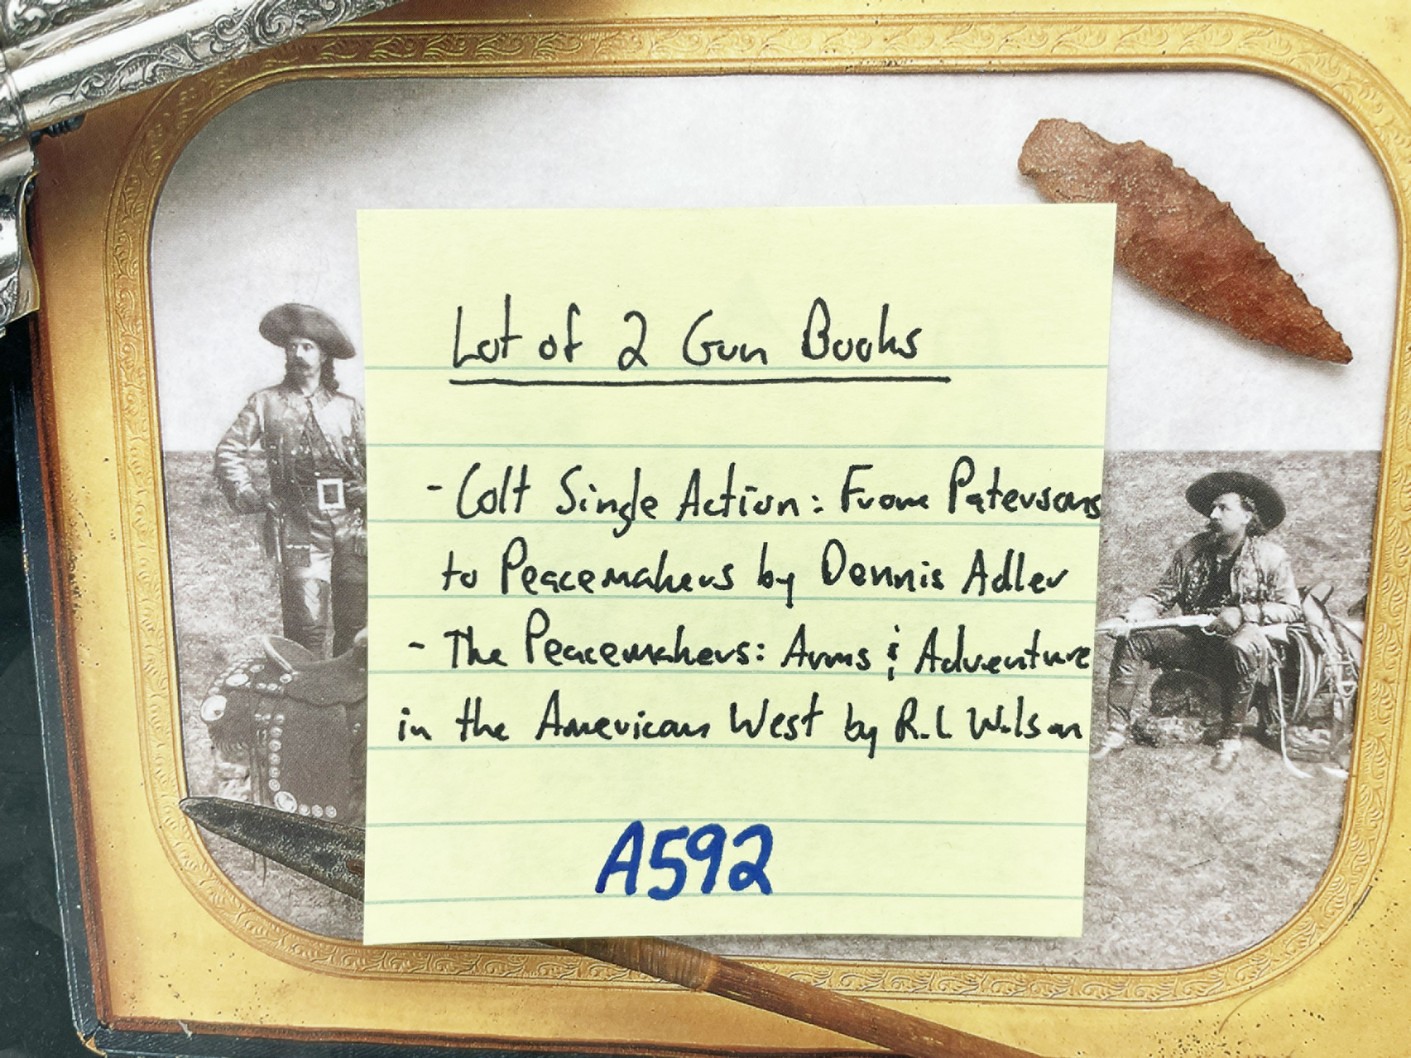 Lot of 2 Gun Books
- Colt Single Action: From Patersons
to Peacemakers by Dennis Adler
- The Peacemakers: Arms & Adventure
in the American West by R.L Wilson
A592